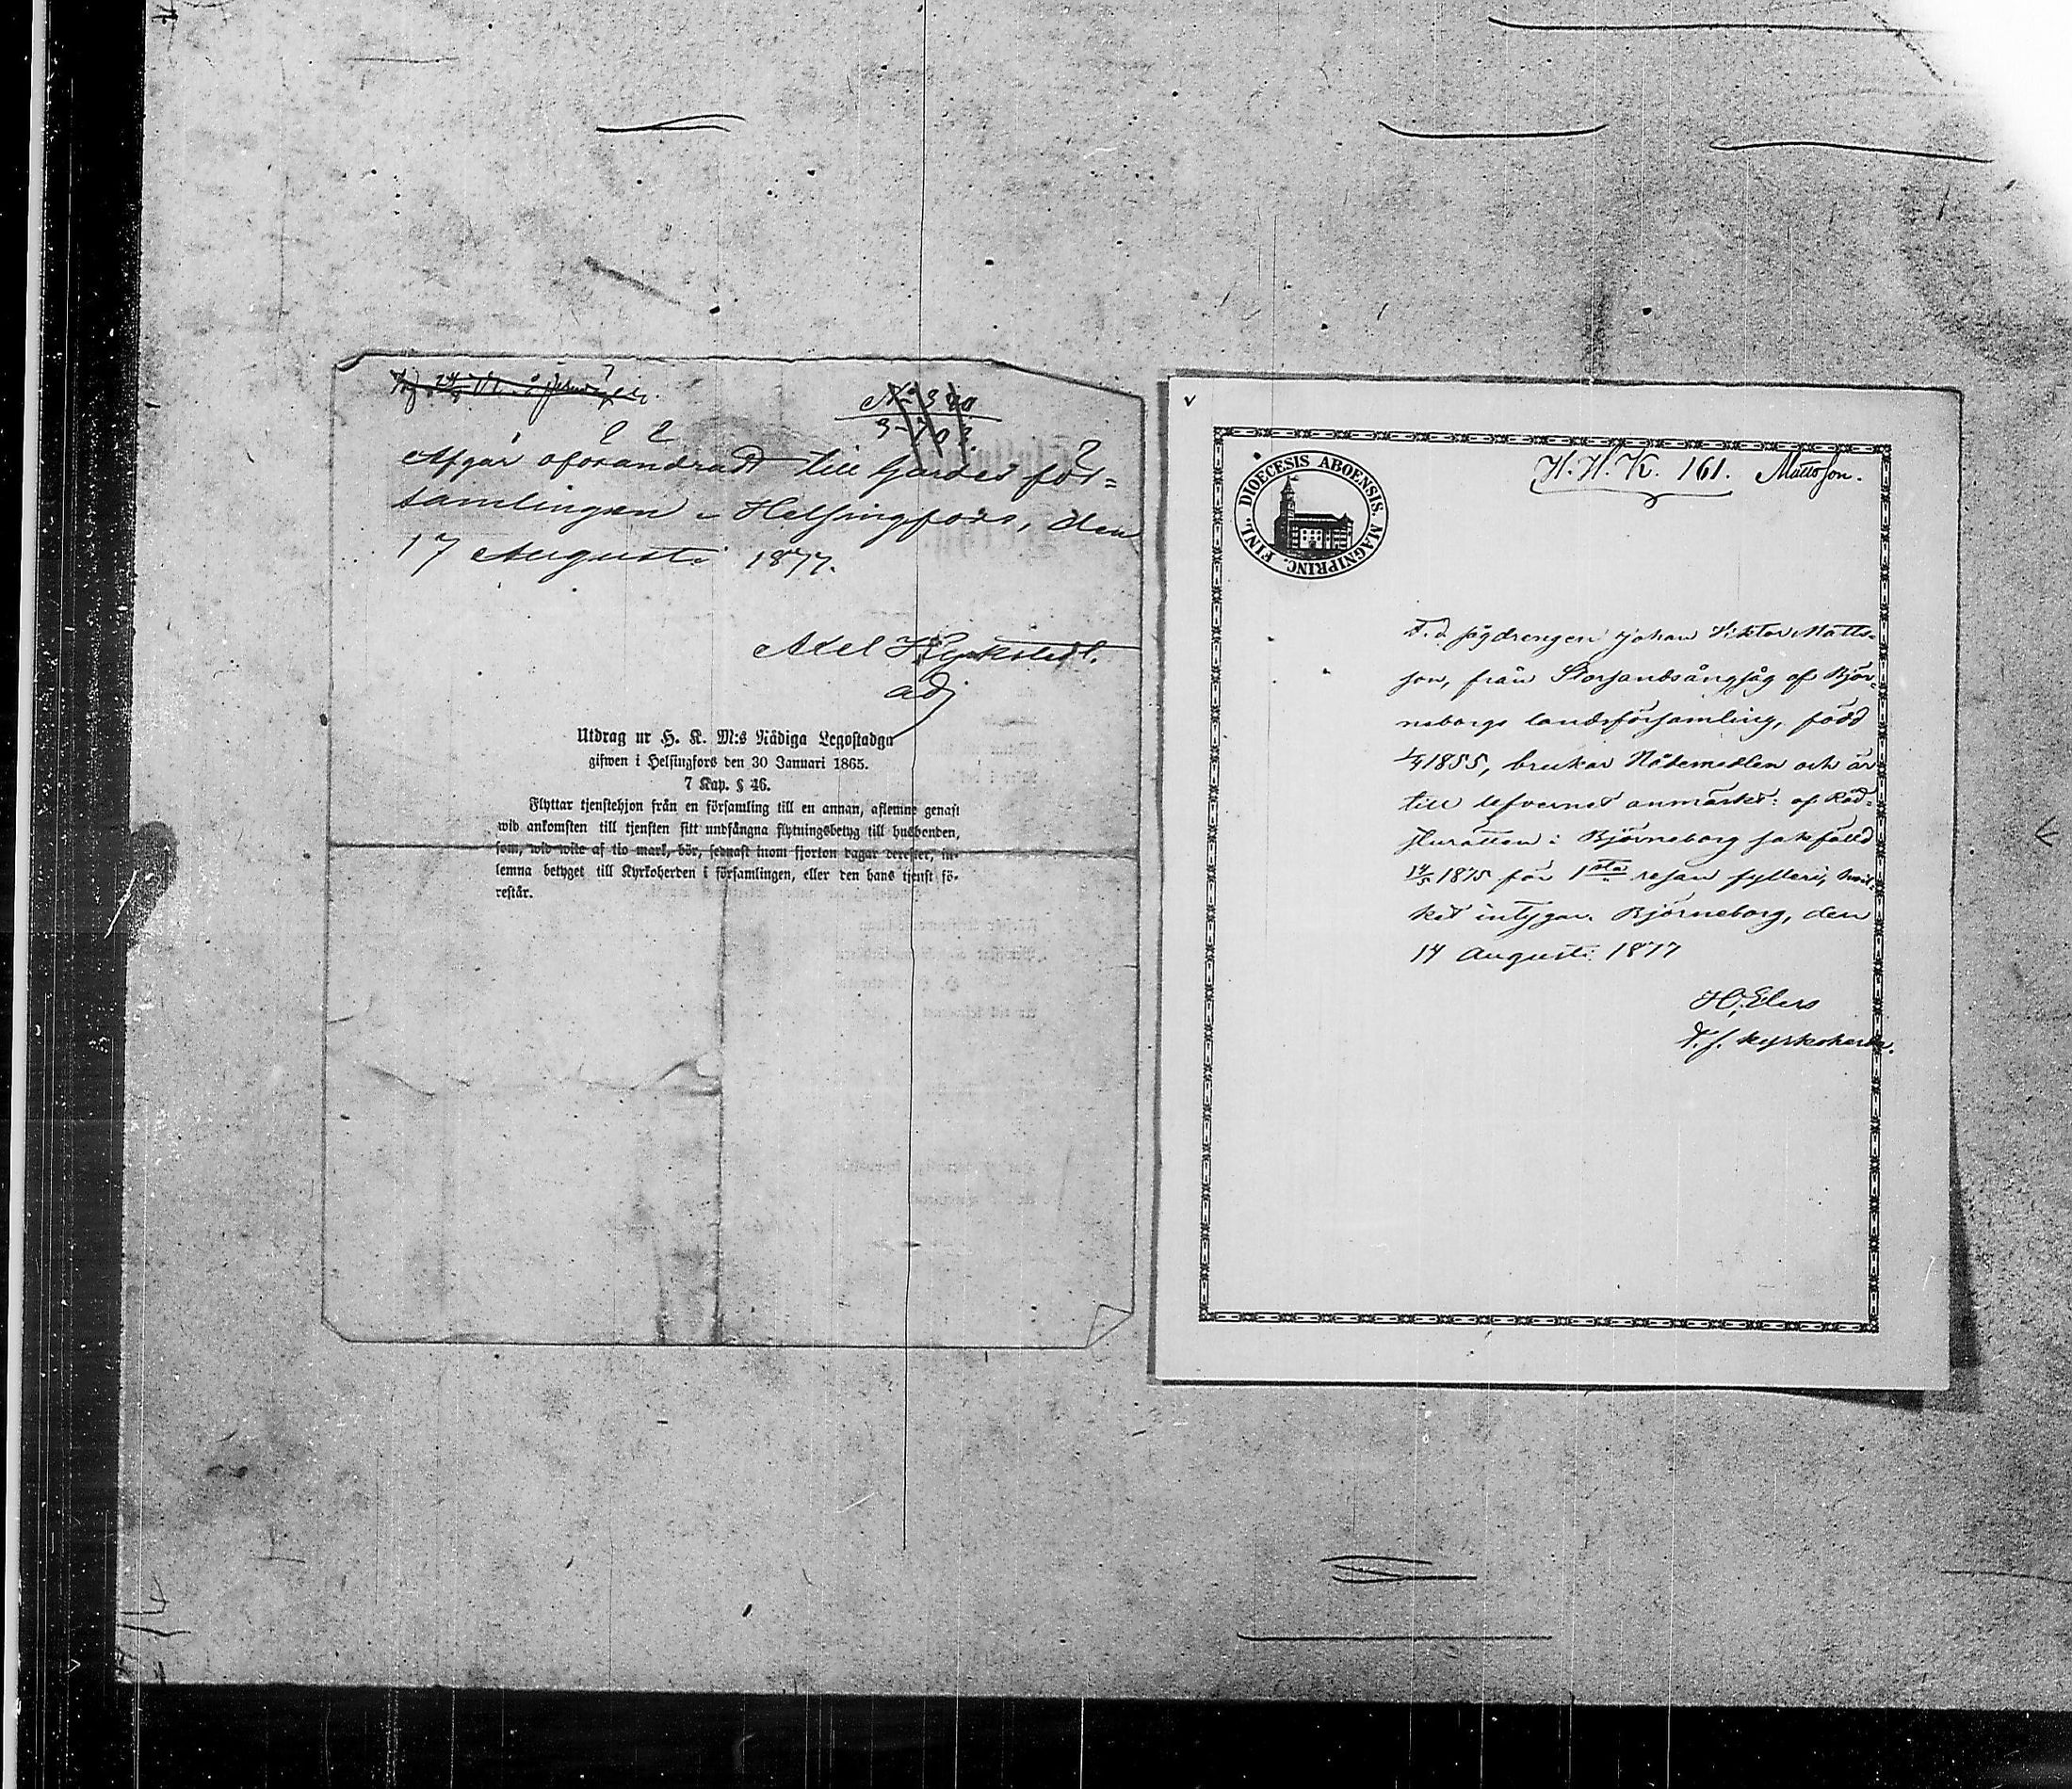 No 320
3-703
Afgår oförändradt till Gardes för-
samlingen i Helsingfors, den
17 Augusti 1877.
Axel Kyrkstedt.
adj
Utdrag ur H. K. M:s Nådiga Legostadga
gifwen i Helsingfors den 30 Januari 1865.
7 Kap. § 46.
Flyttar tjenstehjon från en församling till en annan, aflemne genast
wid ankomsten till tjensten sitt undfångna flytningsbetyg till husbonden,
som, wid wite af tio mark, bör, sednast inom fjorton dagar derefter, in-
lemna betyget till Kyrkoherden i församlingen, eller den hans tjenst fö-
restår.
H. H. K. 161. Mattsson.
FINL. DIOECESIS ABOENSIS. MAGNIPRINC.
F. d. sågdrengen Johan Viktor Matts-
son, från Storsandsångsåg af Björ-
neborgs landsförsamling, född
1855, brukar Nådemedlen och är
till lefvernet anmärkt: af Råd-
sturätten i Björneborg sakfälld
14/5 1875 för 1sta resan fylleri, hvil-
ket intygar. Björneborg, den
14 Augusti 1877
H. Elers
V. f. kyrkoherde.